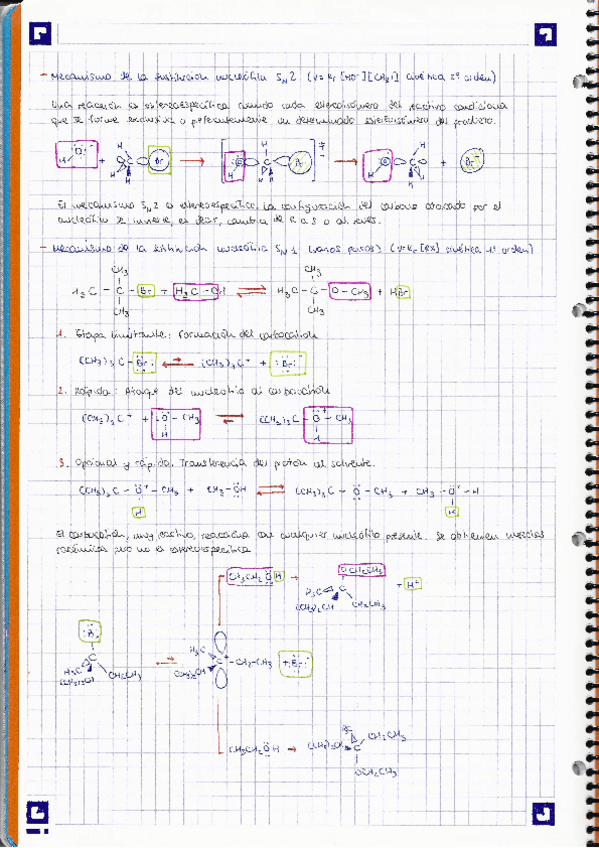 - Mecanismo de la sustitución nucleófila SN2 (v = Kr [HO-][CH3X] cinética 2º orden)
Una reacción es estereoespecífica cuando cada estereoisómero del reactivo condiciona
que se forme exclusiva o preferentemente un determinado estereoisómero del producto.
El mecanismo SN2 es estereoespecífico. La configuración del carbono atacado por el
nucleófilo se invierte, es decir, cambia de R a S o al revés.
- Mecanismo de la sustitución nucleófila SN1 (varios pasos) (v = Kr [RX] cinética 1º orden)
CH3 CH3
H3C - C - Br + H3C - OH ⇌ H3C - C - O - CH3 + HBr
CH3 CH3
1. Etapa limitante: Formación del carbocatión
(CH3)3 C - Br ⇌ (CH3)3 C+ + Br
2. Rápida: Ataque del nucleófilo al carbocatión
(CH3)3 C+ + O - CH3 ⇌ (CH3)3 C - O+ - CH3
H H
3. Opcional y rápida. Transferencia del protón al solvente.
(CH3)3 C - O+ - CH3 + CH3 - OH ⇌ (CH3)3 C - O - CH3 + CH3 - O+ - H
H H
El carbocatión, muy reactivo, reacciona con cualquier nucleófilo presente. Se obtienen mezclas
racémicas pero no es estereoespecífica
CH3CH2OH → OCH2CH3 + H+
H3C
(CH3)2CH CH2CH3
Br
H3C
(CH3)2CH CH2CH3
H3C
(CH3)2CH C+ - CH2-CH3 + Br
CH3CH2OH → (CH3)2CH C CH2CH3
OCH2CH3